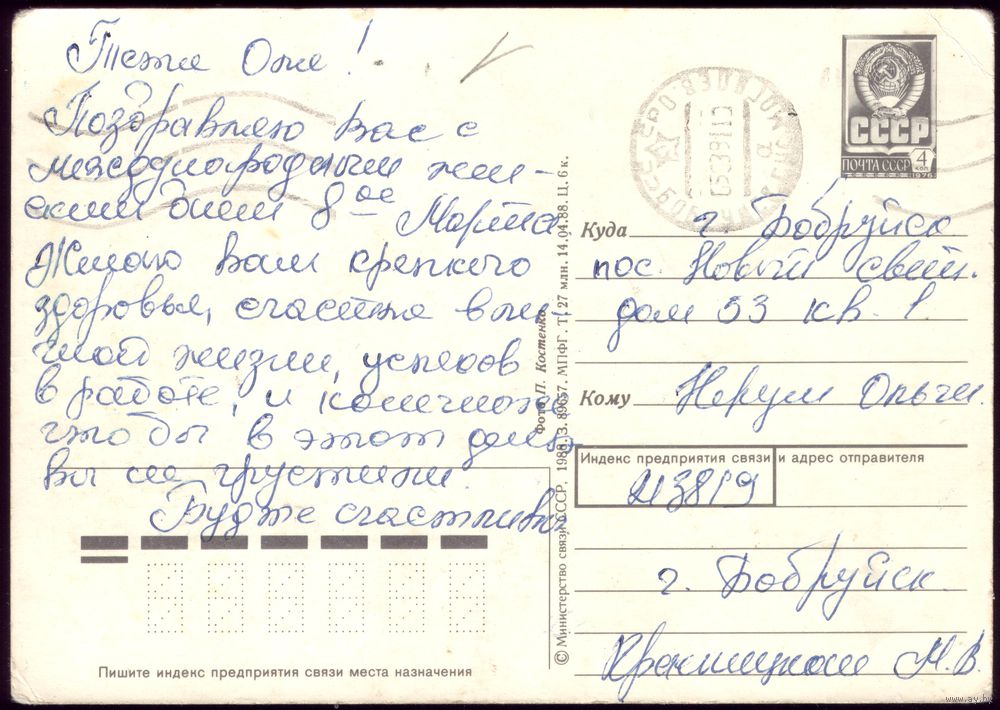 Тетя Оля!
Поздравляю Вас с
международным жен-
ским днем 8ое Марта
Желаю Вам крепкого
здоровья, счастья в лич-
ной жизни, успехов
в работе, и конечно
что бы в этот день
вы не грустили.
Будте счастливы
СССР
ПОЧТА СССР 4 коп
1976
Куда г. Бобруйск
пос. Новый свет.
дом 53 кв. 1.
Кому Ольги.
Индекс предприятия связи и адрес отправителя
213819
г. Бобруйск.
М. В.
Пишите индекс предприятия связи места назначения
© Министерство связи СССР, 1988. З. 89657. МПФГ. Т. 27 млн. 14.04.88. Ц. 6 к.
Фото П. Костенко
www.ay.by